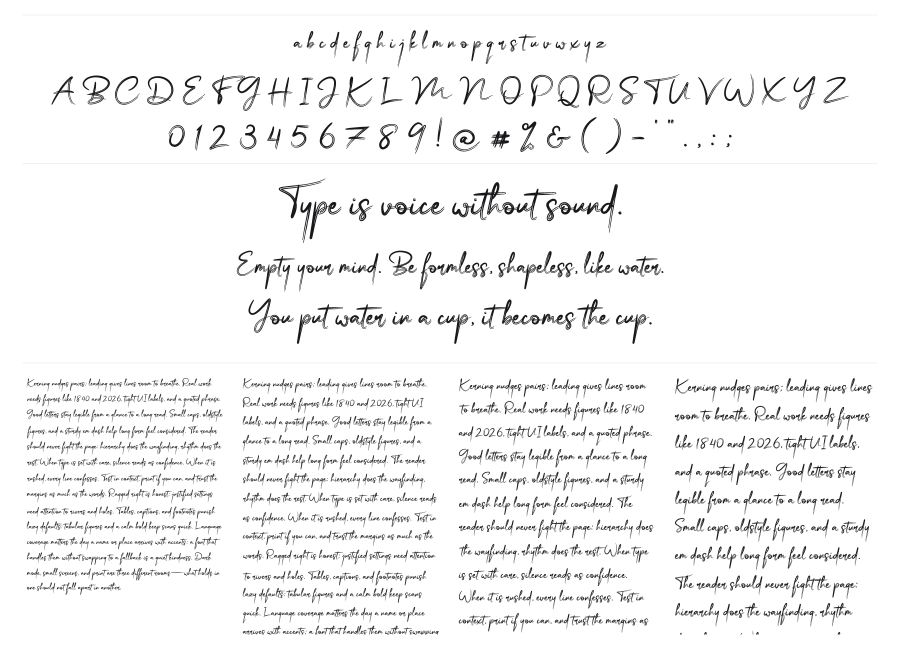 a b c d e f g h i j k l m n o p q r s t u v w x y z
A B C D E F G H I J K L M N O P Q R S T U V W X Y Z
0 1 2 3 4 5 6 7 8 9 ! @ # % & ( ) - ' " . , : ;
Type is voice without sound.
Empty your mind. Be formless, shapeless, like water.
You put water in a cup, it becomes the cup.
Kerning nudges pairs; leading gives lines room to breathe. Real work
needs figures like 1840 and 2026, tight UI labels, and a quoted phrase.
Good letters stay legible from a glance to a long read. Small caps, oldstyle
figures, and a sturdy em dash help long form feel considered. The reader
should never fight the page; hierarchy does the wayfinding, rhythm does the
rest. When type is set with care, silence reads as confidence. When it is
rushed, every line confesses. Test in context, print if you can, and trust the
margins as much as the words. Ragged right is honest; justified settings
need attention to rivers and holes. Tables, captions, and footnotes punish
lazy defaults; tabular figures and a calm bold keep scans quick. Language
coverage matters the day a name or place arrives with accents; a font that
handles them without swapping to a fallback is a quiet kindness. Dark
mode, small screens, and print are three different rooms — what holds in
one should not fall apart in another.
Kerning nudges pairs; leading gives lines room to breathe.
Real work needs figures like 1840 and 2026, tight UI
labels, and a quoted phrase. Good letters stay legible from a
glance to a long read. Small caps, oldstyle figures, and a
sturdy em dash help long form feel considered. The reader
should never fight the page; hierarchy does the wayfinding,
rhythm does the rest. When type is set with care, silence reads
as confidence. When it is rushed, every line confesses. Test in
context, print if you can, and trust the margins as much as the
words. Ragged right is honest; justified settings need attention
to rivers and holes. Tables, captions, and footnotes punish
lazy defaults; tabular figures and a calm bold keep scans
quick. Language coverage matters the day a name or place
arrives with accents; a font that handles them without swapping
Kerning nudges pairs; leading gives lines room
to breathe. Real work needs figures like 1840
and 2026, tight UI labels, and a quoted phrase.
Good letters stay legible from a glance to a long
read. Small caps, oldstyle figures, and a sturdy
em dash help long form feel considered. The
reader should never fight the page; hierarchy does
the wayfinding, rhythm does the rest. When type
is set with care, silence reads as confidence.
When it is rushed, every line confesses. Test in
context, print if you can, and trust the margins as
Kerning nudges pairs; leading gives lines
room to breathe. Real work needs figures
like 1840 and 2026, tight UI labels,
and a quoted phrase. Good letters stay
legible from a glance to a long read.
Small caps, oldstyle figures, and a sturdy
em dash help long form feel considered.
The reader should never fight the page;
hierarchy does the wayfinding, rhythm